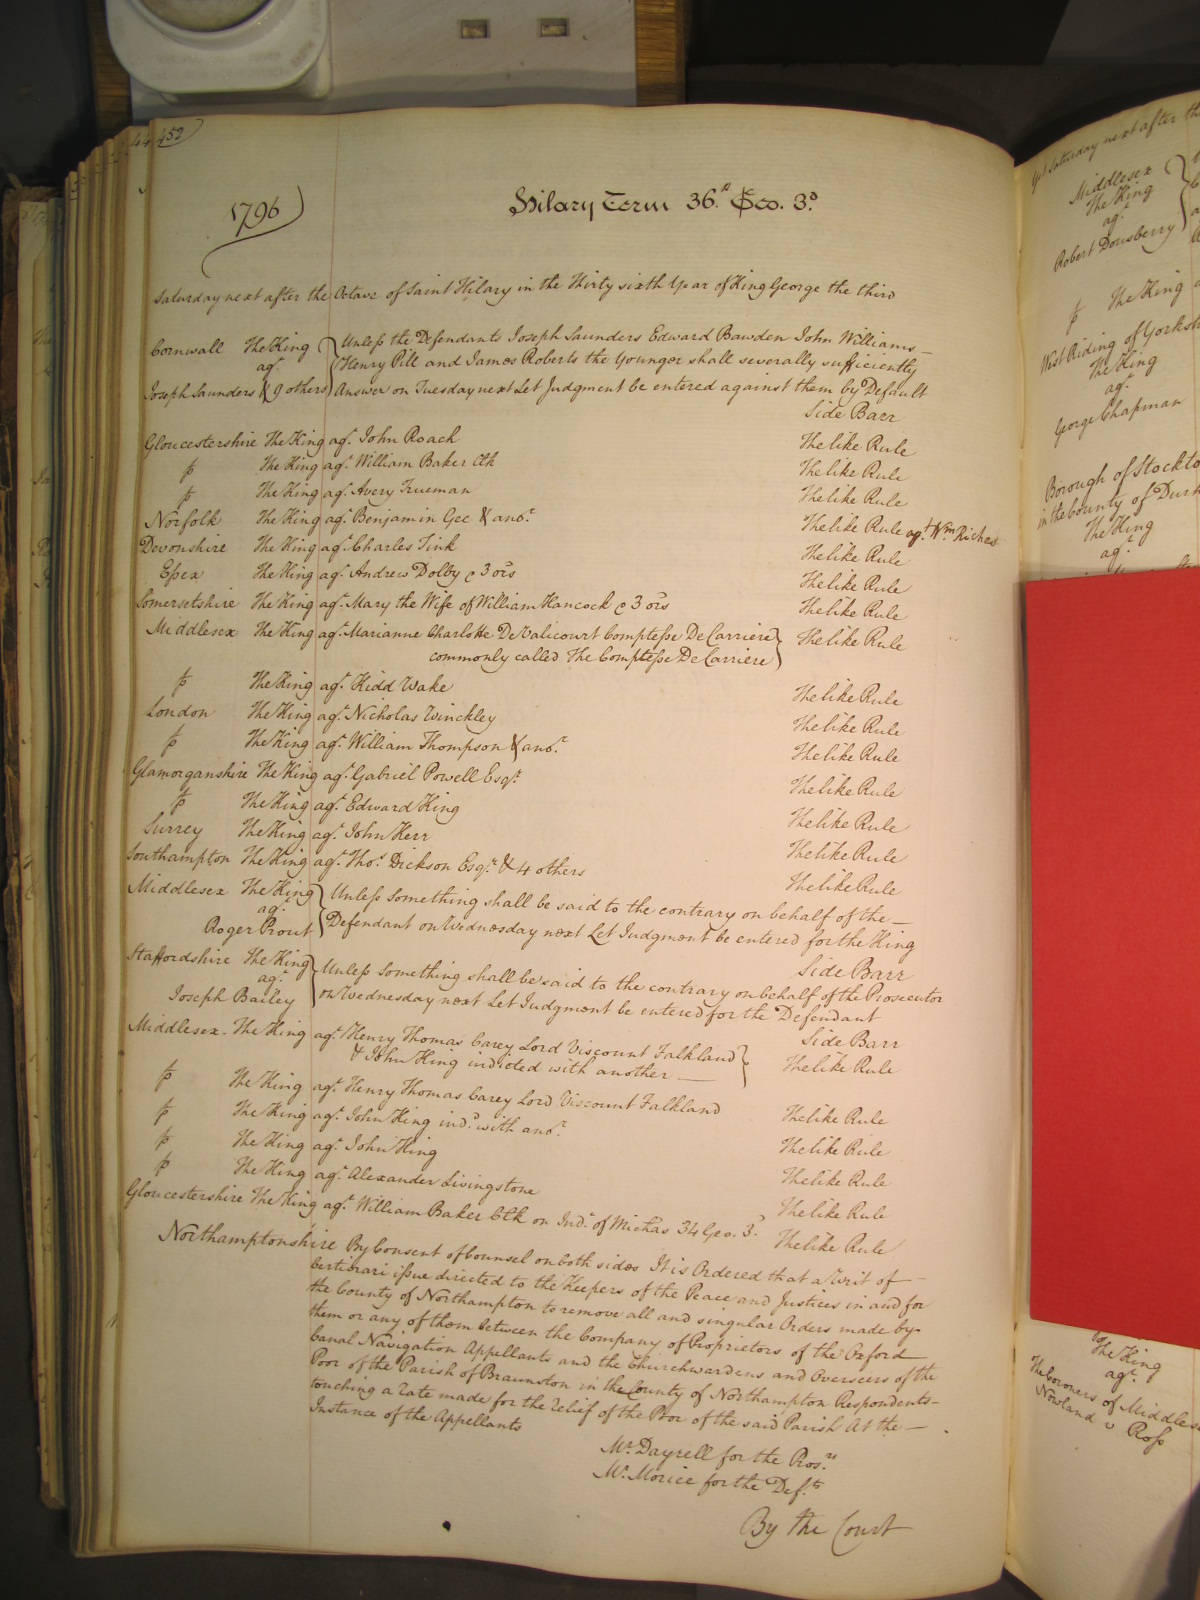 452
1796
Hilary Term 36th Geo. 3d
Saturday next after the Octave of Saint Hilary in the Thirty sixth Year of King George the third
Cornwall The King agt Joseph Saunders & 9 others
Unless the Defendants Joseph Saunders Edward Bawden John Williams
Henry Pill and James Roberts the Younger shall severally sufficiently
Answer on Tuesday next Let Judgment be entered against them by Default
Side Barr
Gloucestershire The King agt John Roach The like Rule
The King agt William Baker Clk The like Rule
The King agt Avery Trueman The like Rule
Norfolk The King agt Benjamin Gee & anor The like Rule agt Wm Riches
Devonshire The King agt Charles Fink The like Rule
Essex The King agt Andrew Dolby & 3 ors The like Rule
Somersetshire The King agt Mary the Wife of William Hancock & 3 ors The like Rule
Middlesex The King agt Marianne Charlotte De Valicourt Comptesse De Carriere
commonly called The Comptesse De Carriere The like Rule
The King agt Kidd Wake The like Rule
London The King agt Nicholas Winckley The like Rule
The King agt William Thompson & anor The like Rule
Glamorganshire The King agt Gabriel Powell Esqr The like Rule
The King agt Edward King The like Rule
Surrey The King agt John Kerr The like Rule
Southampton The King agt Thos Dickson Esqr & 4 others The like Rule
Middlesex The King agt Roger Prout
Unless something shall be said to the contrary on behalf of the
Defendant on Wednesday next Let Judgment be entered for the King
Side Barr
Staffordshire The King agt Joseph Bailey
Unless something shall be said to the contrary on behalf of the Prosecutor
on Wednesday next Let Judgment be entered for the Defendant
Side Barr
Middlesex The King agt Henry Thomas Carey Lord Viscount Falkland
& John King indicted with another The like Rule
The King agt Henry Thomas Carey Lord Viscount Falkland The like Rule
The King agt John King indd with anor The like Rule
The King agt John King The like Rule
The King agt Alexander Livingstone The like Rule
Gloucestershire The King agt William Baker Clk on Indt of Michas 34 Geo. 3d The like Rule
Northamptonshire By Consent of Counsel on both sides It is Ordered that a Writ of
Certiorari issue directed to the Keepers of the Peace and Justices in and for
the County of Northampton to remove all and singular Orders made by
them or any of them between the Company of Proprietors of the Oxford
Canal Navigation Appellants and the Churchwardens and Overseers of the
Poor of the Parish of Braunston in the County of Northampton Respondents
touching a rate made for the relief of the Poor of the said Parish At the
Instance of the Appellants
Mr Dayrell for the Prosrs
Mr Morice for the Defts
By the Court
Yet Saturday next after the
Middlesex
The King
agt
Robert Dousberry
The King
West Riding of Yorksh
The King
agt
George Chapman
Borough of Stockto
in the County of Durh
The King
agt
The King
agt
The Coroners of Middlese
Nowland v Ross